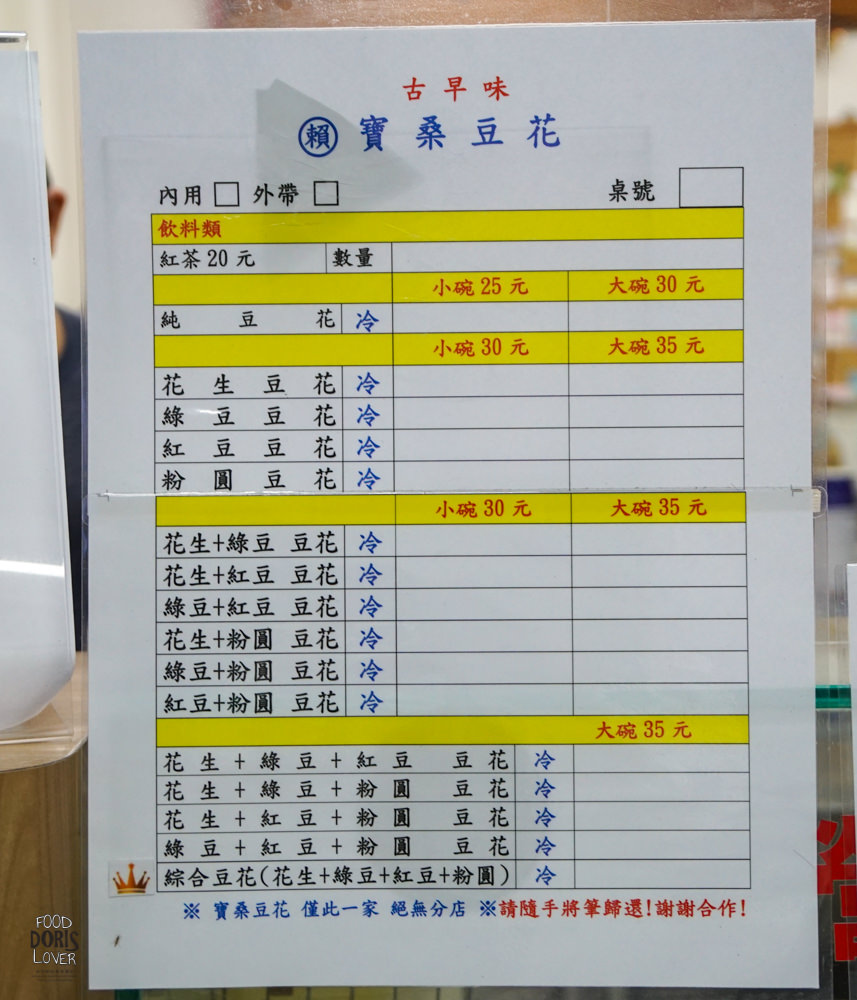 古早味
賴 寶桑豆花
內用 外帶 桌號
飲料類
紅茶20元 數量
小碗25元 大碗30元
純豆花 冷
小碗30元 大碗35元
花生豆花 冷
綠豆豆花 冷
紅豆豆花 冷
粉圓豆花 冷
小碗30元 大碗35元
花生+綠豆 豆花 冷
花生+紅豆 豆花 冷
綠豆+紅豆 豆花 冷
花生+粉圓 豆花 冷
綠豆+粉圓 豆花 冷
紅豆+粉圓 豆花 冷
大碗35元
花生+綠豆+紅豆 豆花 冷
花生+綠豆+粉圓 豆花 冷
花生+紅豆+粉圓 豆花 冷
綠豆+紅豆+粉圓 豆花 冷
綜合豆花(花生+綠豆+紅豆+粉圓) 冷
※ 寶桑豆花 僅此一家 絕無分店 ※請隨手將筆歸還!謝謝合作!
FOOD
DORIS
LOVER